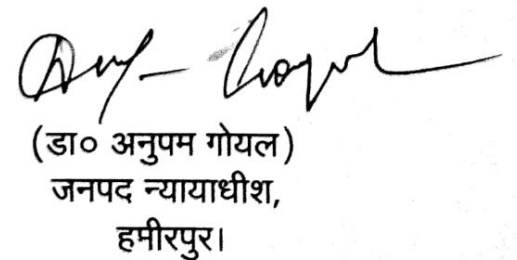 (डा० अनुपम गोयल)
जनपद न्यायाधीश,
हमीरपुर।